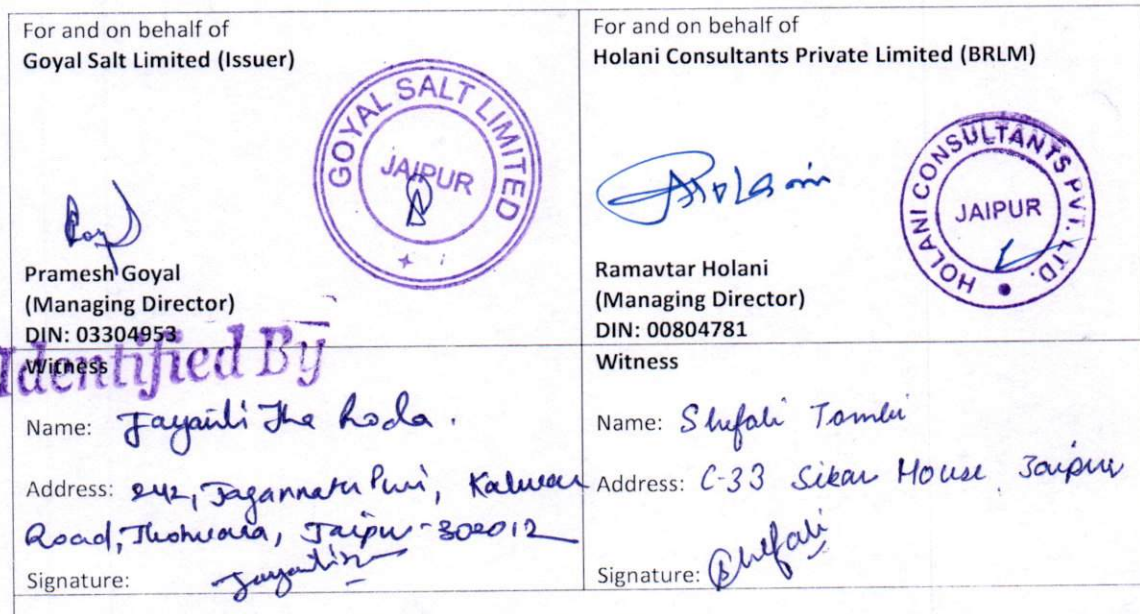 For and on behalf of
Goyal Salt Limited (Issuer)
GOYAL SALT LIMITED
JAIPUR
Pramesh Goyal
(Managing Director)
DIN: 03304953
Identified By
Witness
Name: Jayanti Jha Roda.
Address: 242, Jagannath Puri, Kalwar
Road, Jhotwara, Jaipur-302012
Signature: Jayanti
For and on behalf of
Holani Consultants Private Limited (BRLM)
HOLANI CONSULTANTS PVT. LTD.
JAIPUR
Ramavtar Holani
(Managing Director)
DIN: 00804781
Witness
Name: Shefali Tambi
Address: C-33 Sikar House Jaipur
Signature: Shefali